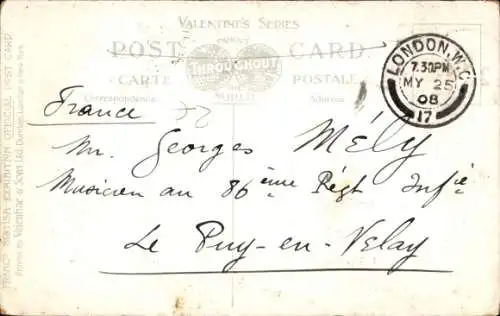 VALENTINE'S SERIES
FAMOUS
POST CARD
THROUGHOUT
CARTE POSTALE
THE WORLD
Correspondence Address
LONDON, W.C.
7.30PM
MY 25
08
17
France
Mr. Georges MÉLY
Musicien au 86ème Régt Infie
Le Puy-en-Velay
FRANCO BRITISH EXHIBITION OFFICIAL POST CARD
Valentine & Sons Ltd Dundee, London & New York